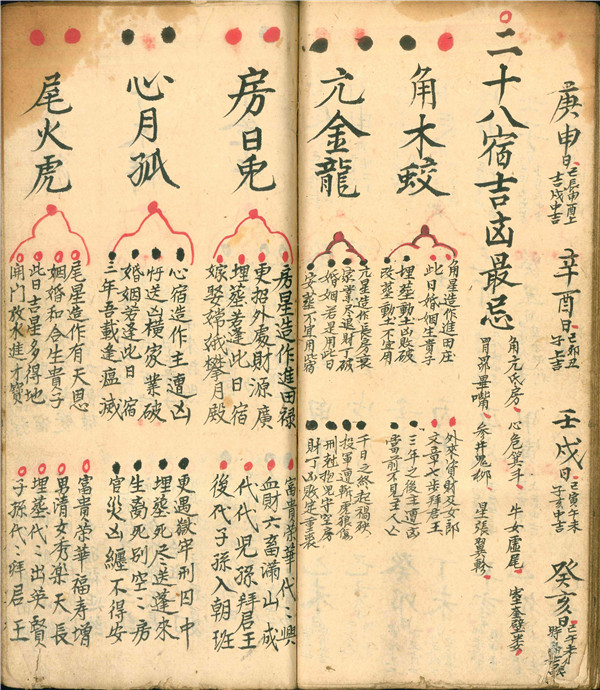 庚申日
己辰申酉上
吉戌中吉
辛酉日
己卯丑
子上吉
壬戌日
己寅午未
子亥中吉
癸亥日
二十八宿吉凶最忌
角亢氐房、心危箕斗、牛女虛尾、室奎壁娄
胃昴畢嘴、參井鬼柳、星張翼軫
角木蛟
角星造作進田庄
此日婚姻生貴子
埋葬動土凶敗破
改墓動土不宜用
外來貨財及女郎
文章七步拜君王
三年之後主遭凶
當前不見主人亡
亢金龍
亢星造作長房衰
家業尽退財丁破
婚姻若是用此日
安葬不宜用此宿
千日之終起禍殃
投軍遭斬虎狼傷
刑尅抱児守空房
財丁凶敗定重喪
房日兎
房星造作進田禄
更招外處財源廣
埋葬若逢此日宿
嫁娶嫦娥攀月殿
富貴荣華代々興
血財六畜滿山成
代代児孫拜君王
後代子孫入朝班
心月狐
心宿造作主遭凶
忤送凶横家業破
婚姻若逢此日宿
三年吾載逢瘟滅
更遇獄牢刑囚中
埋葬死尽送蓬來
生离死别空々房
官災凶纏不得安
尾火虎
尾星造作有天恩
姻婚和合生貴子
此日吉星多得地
開门放水進才寶
富貴荣華福寿增
男清女秀楽天長
埋葬代々出英賢
子孫代々拜君王